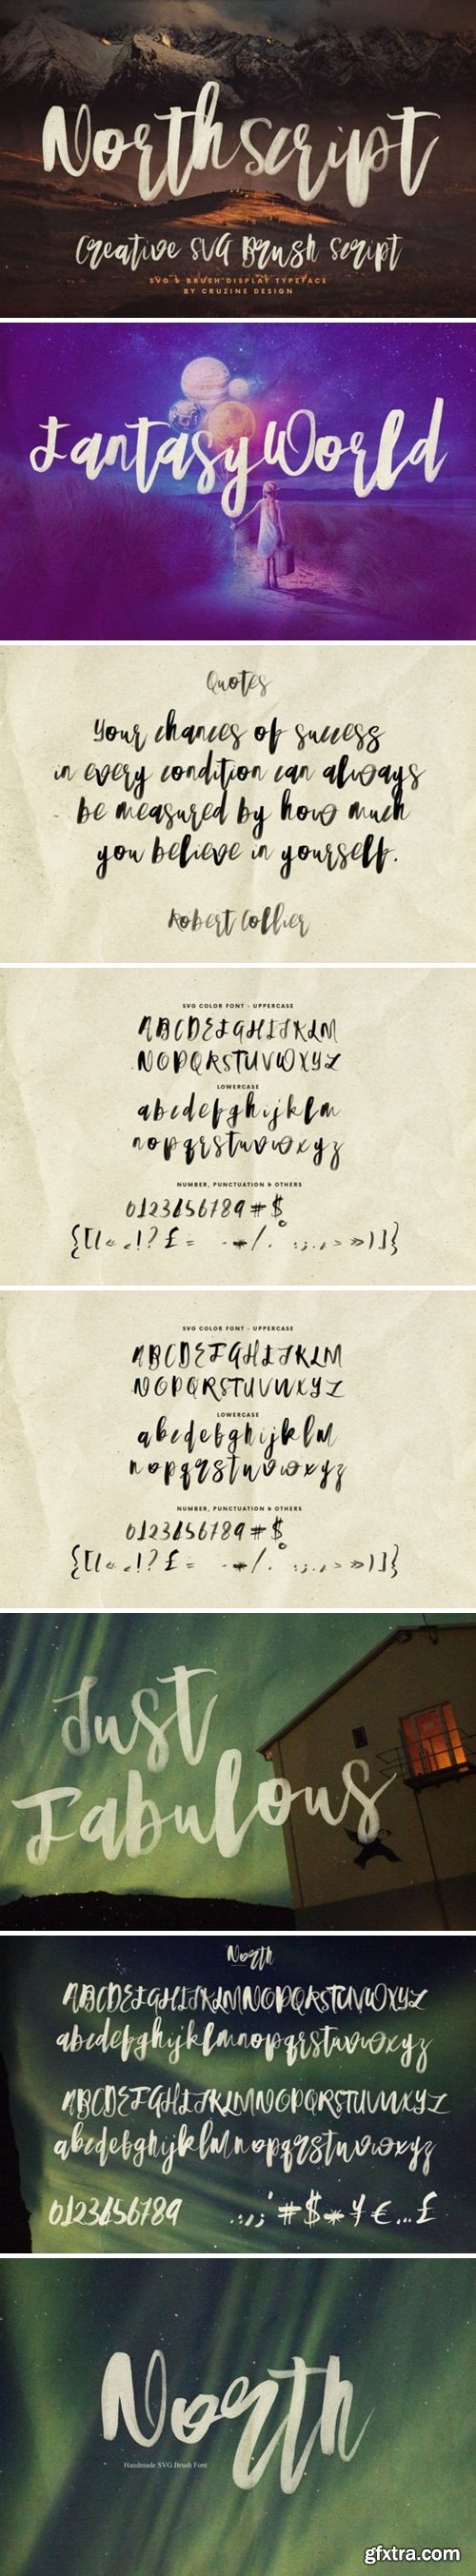 Northscript
Creative SVG Brush Script
SVG & BRUSH DISPLAY TYPEFACE
BY CRUZINE DESIGN
FantasyWorld
Quotes
Your chances of success
in every condition can always
be measured by how much
you believe in yourself.
Robert Collier
SVG COLOR FONT - UPPERCASE
ABCDEFGHIJKLM
NOPQRSTUVWXYZ
LOWERCASE
abcdefghijklm
nopqrstuvwxyz
NUMBER, PUNCTUATION & OTHERS
0123456789#$
{[(«‹!?£= -*/.° :;.,›»)]}
SVG COLOR FONT - UPPERCASE
ABCDEFGHIJKLM
NOPQRSTUVWXYZ
LOWERCASE
abcdefghijklm
nopqrstuvwxyz
NUMBER, PUNCTUATION & OTHERS
0123456789#$
{[(«‹!?£= -*/.° :;.,›»)]}
Just
Fabulous
North
ABCDEFGHIJKLMNOPQRSTUVWXYZ
abcdefghijklmnopqrstuvwxyz
ABCDEFGHIJKLMNOPQRSTUVWXYZ
abcdefghijklmnopqrstuvwxyz
0123456789 .:,;'#$*¥€...£
North
Handmade SVG Brush Font
gfxtra.com